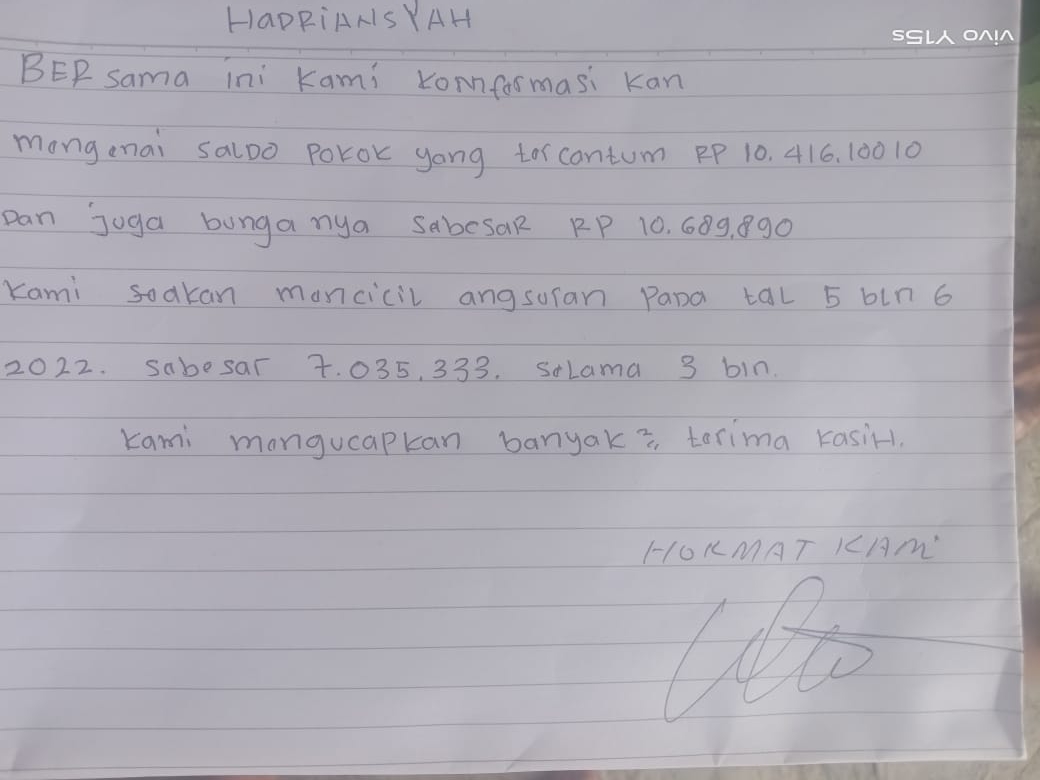 HADRIANSYAH
vivo Y15s
BERsama ini kami konnformasi kan
mengenai SALDO POKOK yang tercantum RP 10.416.10010
Dan juga bunga nya SabesaR RP 10.689.890
Kami seakan mencicil angsuran PaDa taL 5 bln 6
2022. Sabesar 7.035.333. SeLama 3 bln.
Kami mengucapkan banyak 2, terima KasiH.
HORMAT KAMi